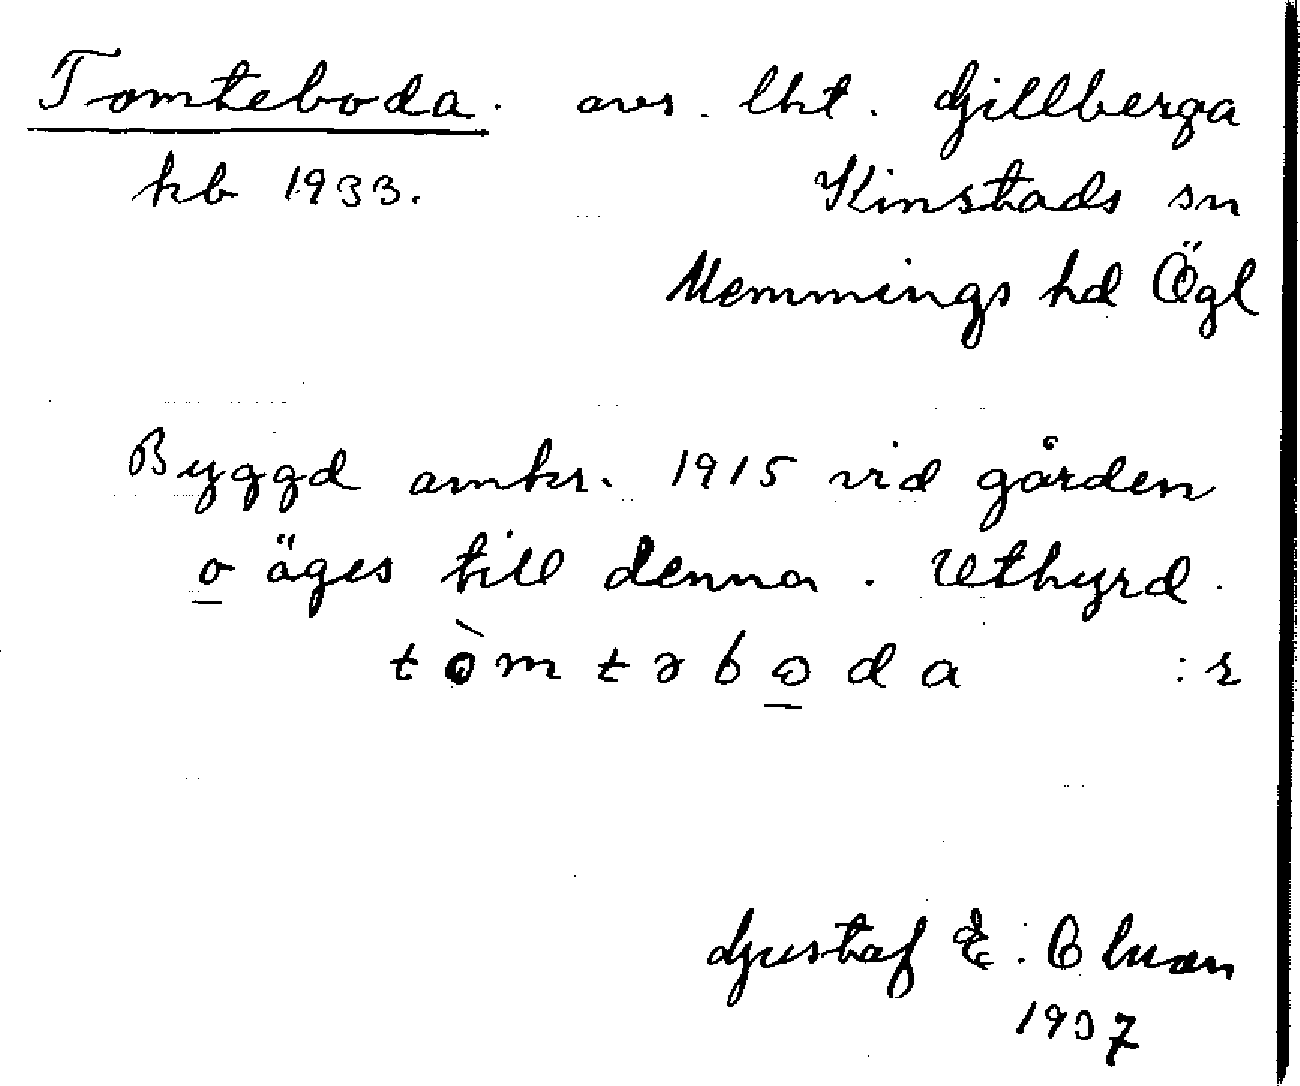 Tomteboda. avs. lht. Gillberga
kb 1933. Kinstads sn
Memmings hd Ögl
Byggd omkr. 1915 vid gården
o äges till denna. Uthyrd.
tòmtəboda :r
Gustaf E:
1937